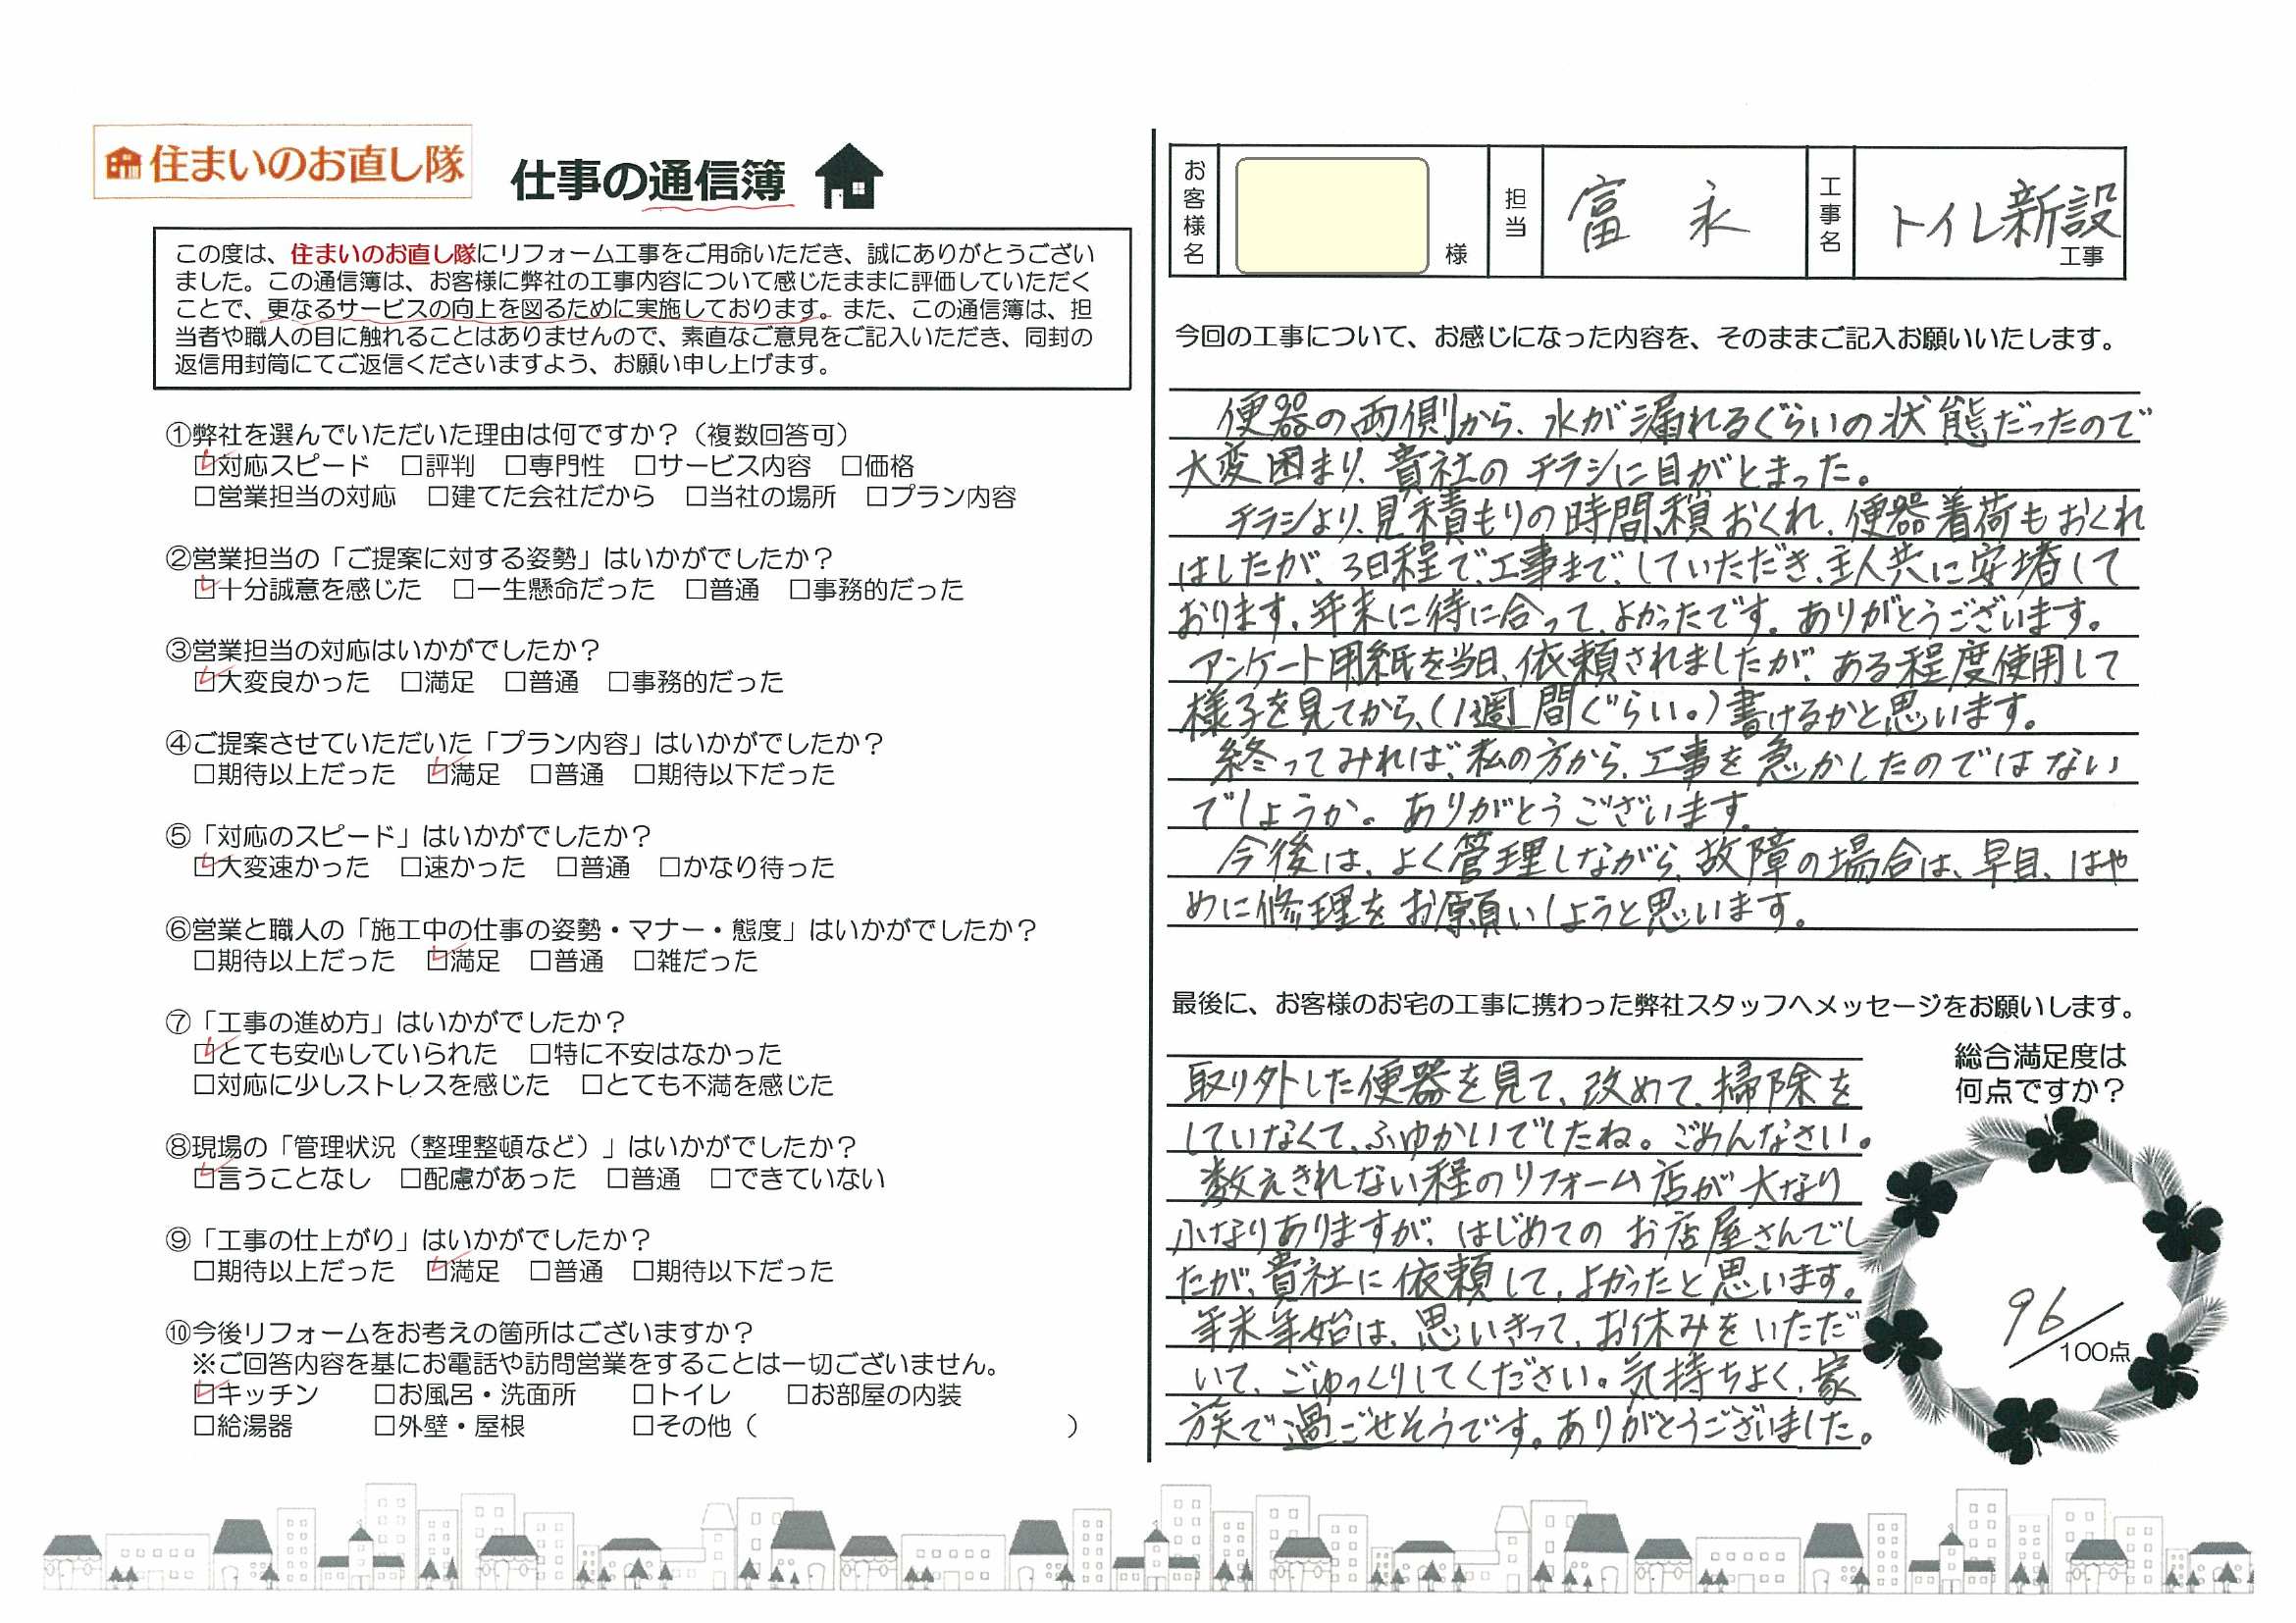 住まいのお直し隊
仕事の通信簿
この度は、住まいのお直し隊にリフォーム工事をご用命いただき、誠にありがとうござい
ました。この通信簿は、お客様に弊社の工事内容について感じたままに評価していただく
ことで、更なるサービスの向上を図るために実施しております。また、この通信簿は、担
当者や職人の目に触れることはありませんので、素直なご意見をご記入いただき、同封の
返信用封筒にてご返信くださいますよう、お願い申し上げます。
①弊社を選んでいただいた理由は何ですか？（複数回答可）
☑対応スピード □評判 □専門性 □サービス内容 □価格
□営業担当の対応 □建てた会社だから □当社の場所 □プラン内容
②営業担当の「ご提案に対する姿勢」はいかがでしたか？
☑十分誠意を感じた □一生懸命だった □普通 □事務的だった
③営業担当の対応はいかがでしたか？
☑大変良かった □満足 □普通 □事務的だった
④ご提案させていただいた「プラン内容」はいかがでしたか？
□期待以上だった ☑満足 □普通 □期待以下だった
⑤「対応のスピード」はいかがでしたか？
☑大変速かった □速かった □普通 □かなり待った
⑥営業と職人の「施工中の仕事の姿勢・マナー・態度」はいかがでしたか？
□期待以上だった ☑満足 □普通 □雑だった
⑦「工事の進め方」はいかがでしたか？
☑とても安心していられた □特に不安はなかった
□対応に少しストレスを感じた □とても不満を感じた
⑧現場の「管理状況（整理整頓など）」はいかがでしたか？
☑言うことなし □配慮があった □普通 □できていない
⑨「工事の仕上がり」はいかがでしたか？
□期待以上だった ☑満足 □普通 □期待以下だった
⑩今後リフォームをお考えの箇所はございますか？
※ご回答内容を基にお電話や訪問営業をすることは一切ございません。
☑キッチン □お風呂・洗面所 □トイレ □お部屋の内装
□給湯器 □外壁・屋根 □その他（ ）
お客様名 様 担当 富永 工事名 トイレ新設 工事
今回の工事について、お感じになった内容を、そのままご記入お願いいたします。
便器の両側から、水が漏れるぐらいの状態だったので
大変困まり、貴社のチラシに目がとまった。
チラシより、見積もりの時間、積おくれ、便器着荷もおくれ
はしたが、3日程で、工事まで、していただき、主人共に安堵して
おります。年末に待に合って、よかったです。ありがとうございます。
アンケート用紙を当日、依頼されましたが、ある程度使用して
様子を見てから、(1週間ぐらい。)書けるかと思います。
終ってみれば、私の方から、工事を急かしたのではない
でしょうか。ありがとうございます。
今後は、よく管理しながら、故障の場合は、早目、はや
めに修理をお願いしようと思います。
最後に、お客様のお宅の工事に携わった弊社スタッフへメッセージをお願いします。
取り外した便器を見て、改めて、掃除を
していなくて、ふゆかいでしたね。ごめんなさい。
数えきれない程のリフォーム店が大なり
小なりありますが、はじめてのお店屋さんでし
たが、貴社に依頼して、よかったと思います。
年末年始は、思いきって、お休みをいただ
いて、ごゆっくりしてください。気持ちよく、家
族で過ごせそうです。ありがとうございました。
総合満足度は
何点ですか？
96/100点